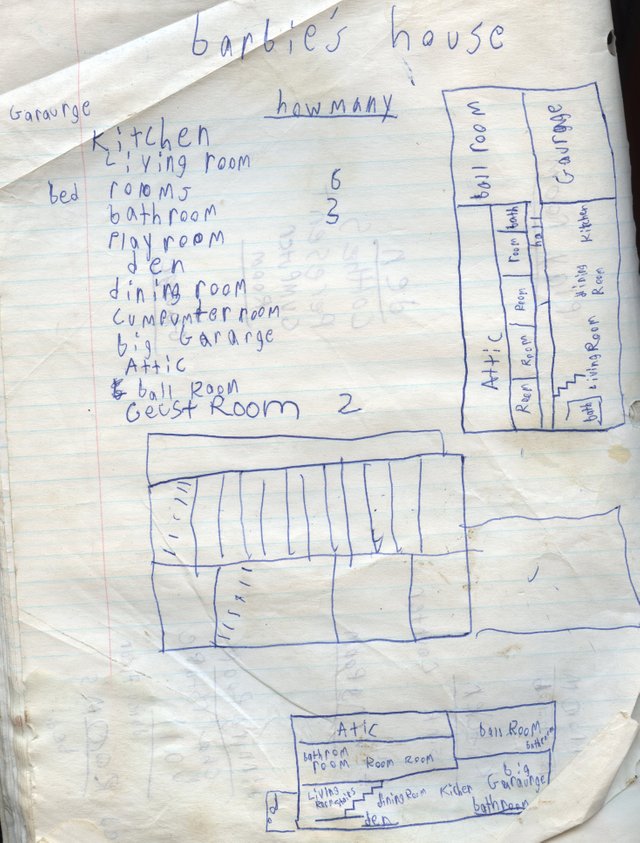 barbie's house
Garaurge
howmany
Kitchen
Living room
bed rooms 6
bathroom 3
Playroom
den
dining room
Cumpumter room
big Gararge
Attic
ball Room
Geust Room 2
ball room
Gaurage
Attic
Room Room Room room bath
hall
bath LivingRoom dining Room Kitchen
Attic
ball Room
bathroom
bathrom
room Room Room
Living
Room stairs
diningRoom Kichen
big
Garaurge
bathroom
den